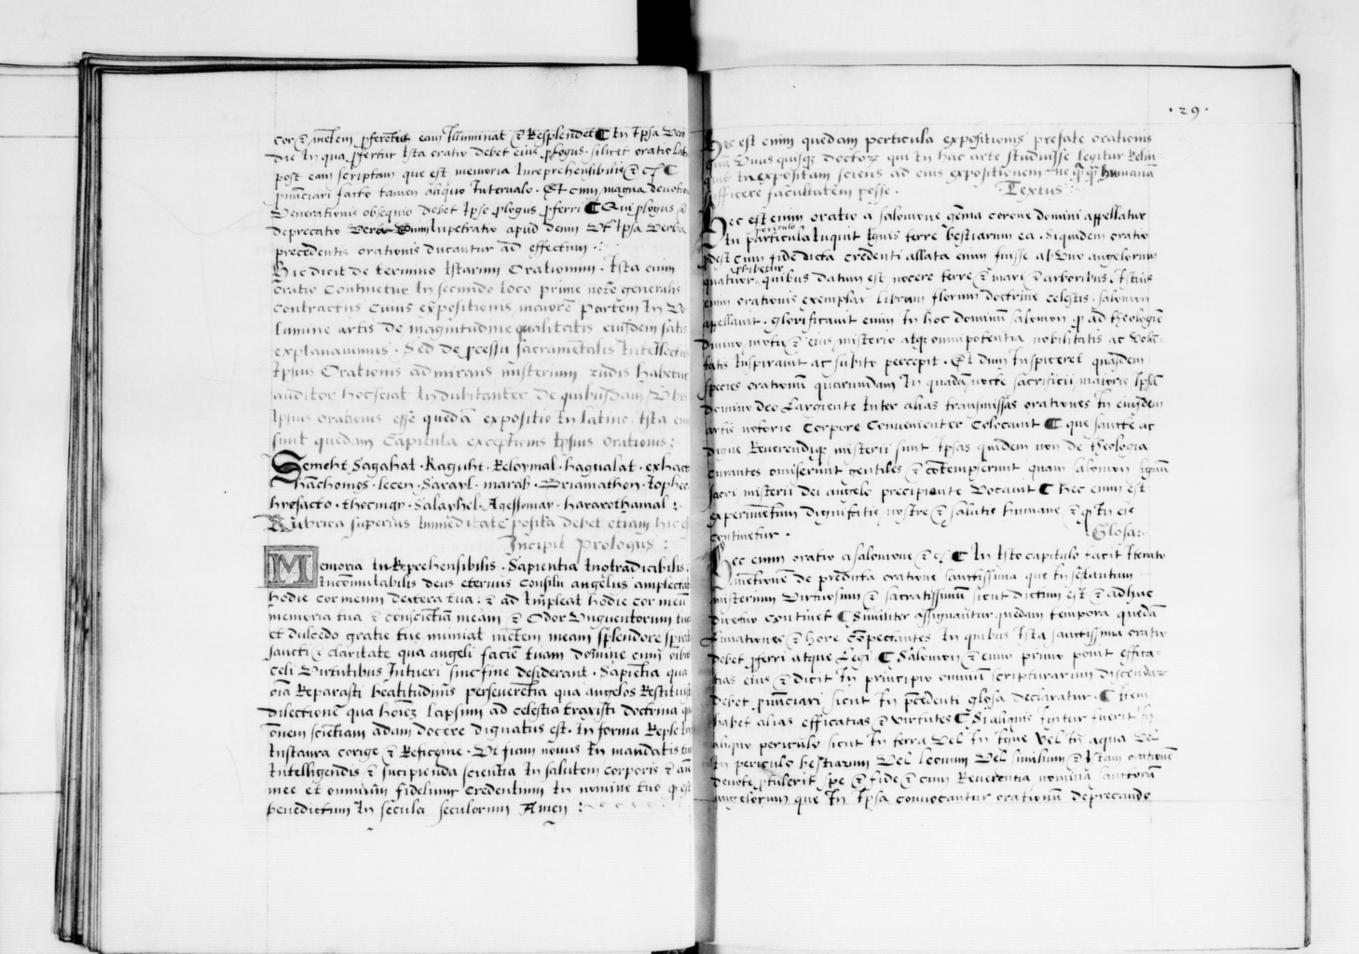 cor & mentem proferentis eam Illuminat & Resplendet ¶ In Ipsa
die In qua profertur Ista oratio debet eius prologus. similiter oratio
post eam scriptam que est memoria Inreprehensibilis & cs ¶
pronunciari facto tamen aliquo Intervalo. Et cum magna devotio
Venerationis obsequio debet Ipse prologus proferri ¶ Qui prologus &
deprecatio Impetratio apud deum Ut Ipsa Verba
precedentis orationis ducantur ad effectum.
Hic dicit de termino Istarum Orationum. Ista enim
Oratio Continetur In secundo loco prime note generalis
contractus Cuius expositionis maiore Partem In
lumine artis de magnitudine qualitatis eiusdem satis
explanavimus. Sed de processu sacramentalis Intellectus
Ipsius Orationis admirans misterium rudis habetur
auditor hoc sciat Indubitanter de quibusdam
Ipsius orationis esse quedam expositio In latino. Ista
sunt quedam Capitula exceptionis Ipsius orationis:
Semeht. Sagahat. Raguht. Reloymal. hagualat. exhac
hanchomos. lecen. Sararl. marab. Briamathon. Iophec
hrosacto. thocingr. Salayhel. Agessomar. hararothamal:
Rubrica superius Immeditate posita debet etiam hic
Incipit Prologus:
Memoria InReprehensibilis. Sapientia Incontradicabilis.
Incommutabilis deus eternus Consilii angelus amplectat
hodie cor meum dextera tua: & ad Impleat hodie cor meum
memoria tua & conscientiam meam & Odor Unguentorum
et dulcedo gratie tue muniat mentem meam splendore spiritus
sancti & claritate qua angeli faciem tuam domine cum
celi Virtutibus Intueri sine fine desiderant. Sapientia qua
omnia Reparasti beatitudinis perseverentia qua angelos Restituisti
dilectione qua hominem lapsum ad celestia traxisti doctrina
omnem scientiam adam docere dignatus est. In forma Reple
Instaura corige & Refice me. Ut fiam novus In mandatis
Intelligendis & suscipienda scientia In salutem corporis &
mee et omnium fidelium Credentium In nomine tuo quod est
benedictum In secula seculorum Amen:
.29.
Hec est enim quedam particula expositionis prefate orationis
Unus quisque doctor qui In hac arte studuisse legitur
Inexpositam sciens ad eius expositionem ne humana
fficere facultatem posse. Textus
Hec est enim oratio a salomone gema corone domini appellatur
periculo
In particula Inquit Ignis terre bestiarum ea. Siquidem oratio
est cum fide dicta credenti allata enim fuisse ab Uno angelorum
prohibetur
quatuor quibus datum est nocere terre & mari & arboribus. Istius
enim orationis exemplar librum florum doctrine celestis. salomon
appellavit. glorificavit enim In hoc dominum salomon quod ad theologiem
divino motu & eius misterio atque omnipotentia nobilitatis ac
tatis Inspiravit ac subito percepit. Et dum Inspiceret quasdem
species orationum quarumdam In quadam nocte sacrificii maioris Ipsam
domino deo Largiente Inter alias transmissas orationes In eiusdem
artis notorie Corpore Convenienter Colocavit ¶ que sancte ac
digne Reverendique misterii sunt Ipsas quidem non de theologia
curantes omiserunt gentiles & contempserunt quam salomon signum
sacri misterii dei angelo precipiente Vocavit ¶ hec enim est
experimentum dignitatis nostre & salutis humane & quod In eis
continetur. Glosa:
Hec enim oratio a salomone & cs ¶ In Isto capitulo facit Iterato
mentionem de predicta oratione sanctissima que In se
misterium Virtuosum & sacratissimum sicut dictum est & adhuc
dicetur continet ¶ Similiter assignantur quedam tempora quedam
lunationes & hore Compectantes In quibus Ista sanctissima oratio
debet proferri atque Legi ¶ Salomon & enim primo ponit effica-
tias eius & dicit In principio omnium scripturarum
debet pronunciari sicut In precedenti glosa declaratur. ¶ Item
habet alias efficatias & virtutes ¶ Si aliquis fuerit In
aliquo periculo sicut In terra Vel In Igne Vel In aqua Vel
In periculo bestiarum Vel leonum Vel similium & Istam orationem
devote protulerit spe & fide & cum Reverentia nomina sanctorum
angelorum que In Ipsa convocantur orationum deprecando